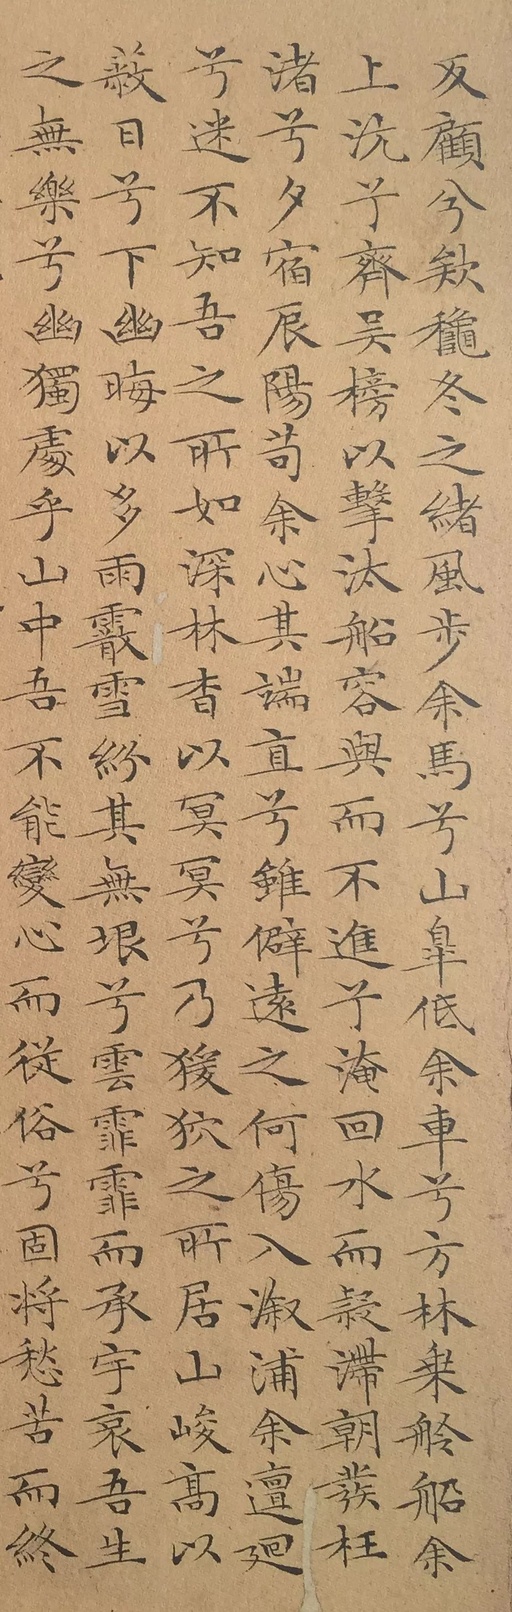 反顧兮欸穐冬之緒風步余馬兮山皐低余車兮方林乗舲船余
上沅兮齊吴榜以擊汰船容與而不進兮淹回水而疑滯朝發枉
渚兮夕宿辰陽苟余心其端直兮雖僻遠之何傷入溆浦余儃廻
兮迷不知吾之所如深林杳以冥冥兮乃猨狖之所居山峻高以
蔽日兮下幽晦以多雨霰雪紛其無垠兮雲霏霏而承宇哀吾生
之無樂兮幽獨處乎山中吾不能變心而從俗兮固将愁苦而終